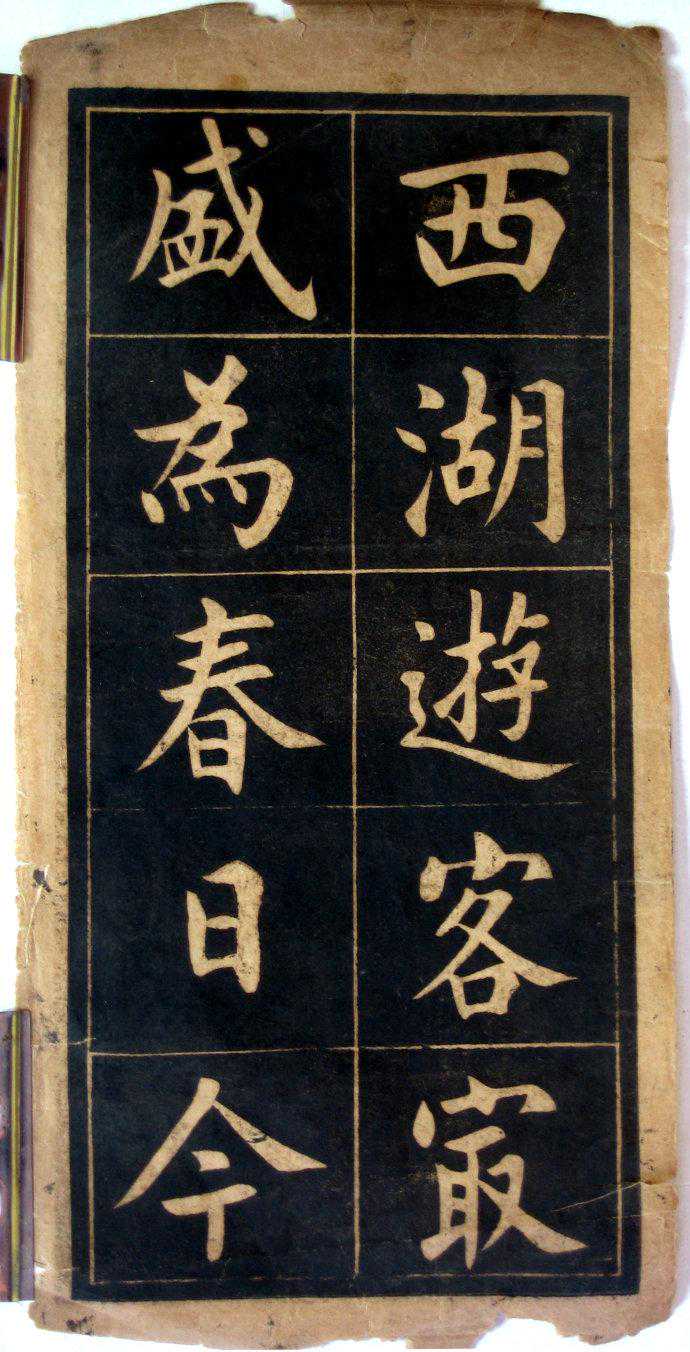 西湖遊客冣
盛為春日今